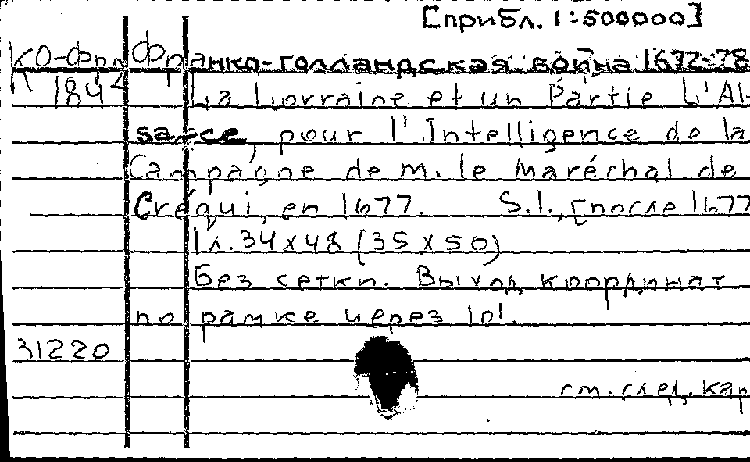 [прибл. 1:500000]
КО-Фрл Франко-голландская война 1672-78
П 1842 La Lorraine et un Partie L'Al-
sasce, pour l'Intelligence de la
Campagne de m. le Maréchal de
Créqui, en 1677. S.l., [после 1677
1 л. 34x48 (35x50)
Без сетки. Выход координат
по рамке через 10'.
31220
см. след. кар